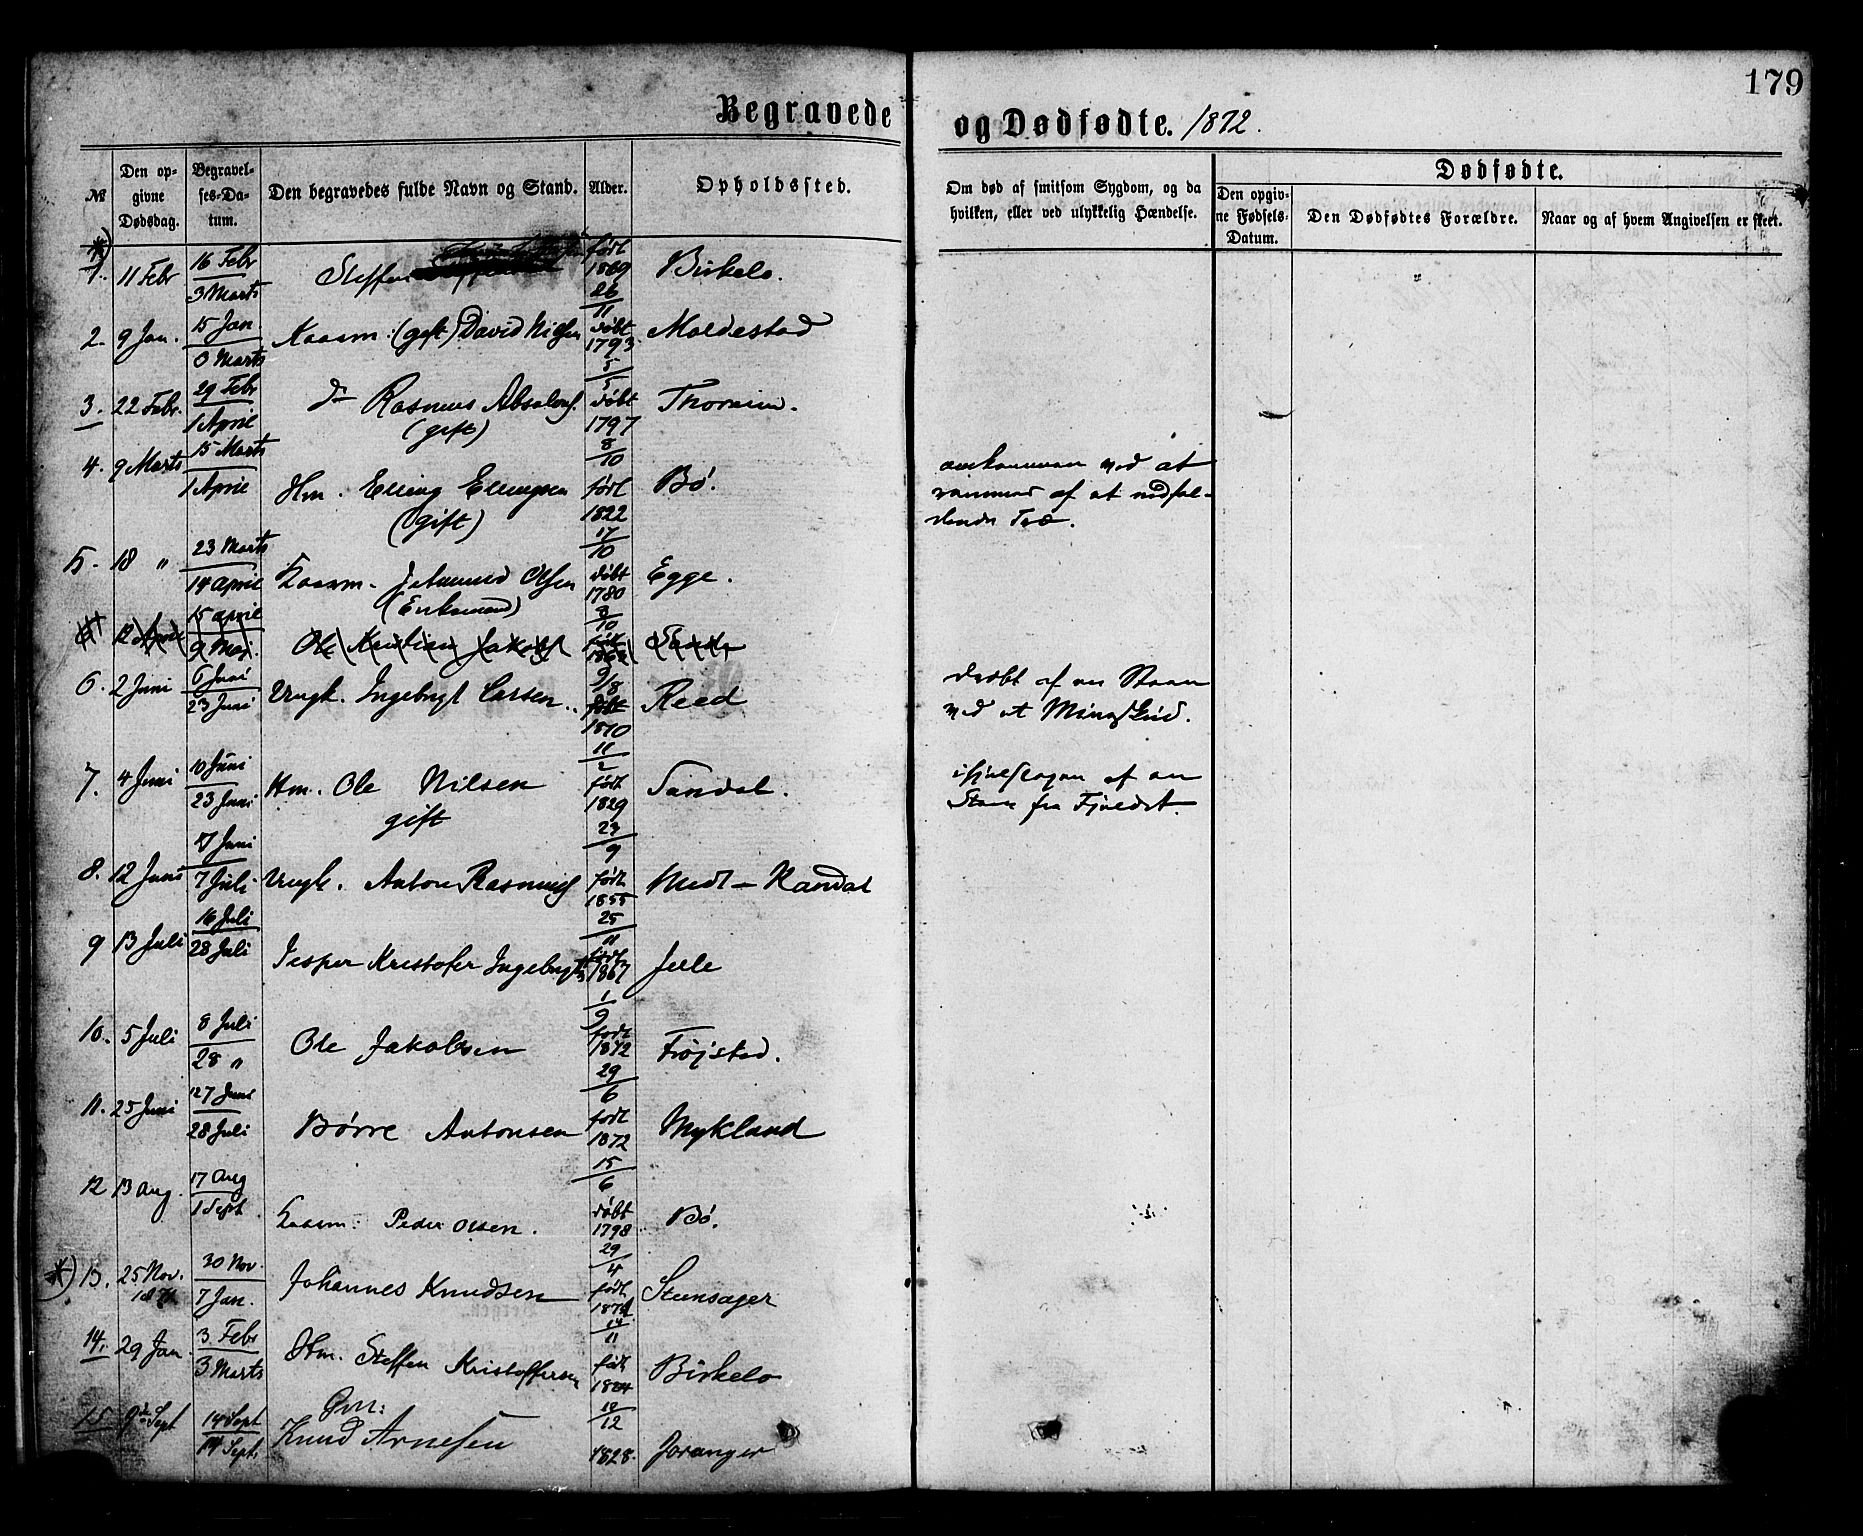 179
Begravede og Dødfødte. 1872.
№
Den opgivne Dødsdag.
Begravelses-Datum.
Den begravedes fulde Navn og Stand.
Alder.
Opholdssted.
Om død af smitsom Sygdom, og da hvilken, eller ved ulykkelig Hændelse.
Dødfødte.
Den opgivne Fødsels-Datum.
Den Dødfødtes Forældre.
Naar og af hvem Angivelsen er skeet.
*) 1. 11 Febr 16 Febr 3 Marts Steffen født 1869 26/11 Birkelo.
2. 9 Jan. 15 Jan. 3 Marts Kaarm: (gift) David Nilsen døbt 1793 5/5 Moldestad
3. 22 Febr. 29 Febr 1 April do Rasmus Absalons. (gift) døbt 1797 8/10 Thoreim.
4. 9 Marts 15 Marts 1 April Hm. Elling Ellingsen (gift) født 1822 17/10 Bø.
omkommen ved at
rammes af et nedfal-
dende Træ.
5. 18 " 23 Marts 14 April Kaarm. Johannes Olsen (Enkemand) døbt 1780 3/10 Egge.
12 April 15 April 9 Mai. Ole Kristian Jakobs. født 9/8 Sande
6. 2 Juni 6 Juni 23 Juni Ungk. Ingebrigt Larsen født 1870 11/2 Reed
dræbt af en Steen
ved et Mineskud.
7. 4 Juni 10 Juni 23 Juni Hm. Ole Nilsen gift født 1829 23/9 Sandal.
ihjelslagen af en
Steen fra Fjeldet.
8. 12 Juni 17 Juni 7 Juli Ungk. Anton Rasmuss. født 1855 25/11 Medt-Kandal
9 13 Juli 16 Juli 28 Juli Jesper Kristofer Ingebrigts. født 1867 1/9 Jelle
10. 5 Juli 8 Juli 28 " Ole Jakobsen født 1872 29/6 Frøjstad.
11. 25 Juni 27 Juni 28 Juli Børre Antonsen født 1872 15/6 Mykland
12 13 Aug. 17 Aug 1 Sept. Kaarm: Peder Olsen. døbt 1798 29/4 Bø.
*) 13. 25 Nov. 1871 30 Nov 7 Jan. Johannes Knudsen født 1871 14/11 Steensager
14. 29 Jan. 3 Febr 3 Marts Hm. Steffen Kristoffersen født 1804 10/12 Birkelo
15 9de Sept 14 Sept 14 Sept. Gm: Knud Arnesen 1828. Joranger